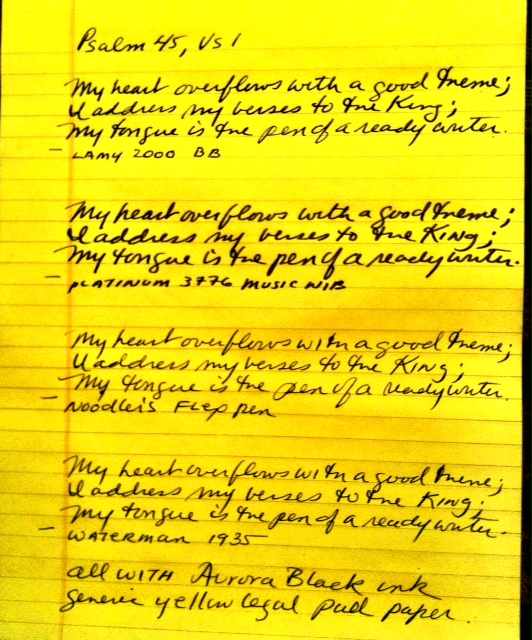 Psalm 45, Vs 1
My heart overflows with a good theme;
I address my verses to the King;
My tongue is the pen of a ready writer.
- LAMY 2000 BB
My heart overflows with a good theme;
I address my verses to the King;
My tongue is the pen of a ready writer.
- PLATINUM 3776 MUSIC NIB
My heart overflows with a good theme;
I address my verses to the King;
My tongue is the pen of a ready writer.
- Noodler's Flex pen
My heart overflows with a good theme;
I address my verses to the King;
My tongue is the pen of a ready writer.
- WATERMAN 1935
all WITH Aurora Black ink
generic yellow legal pad paper.